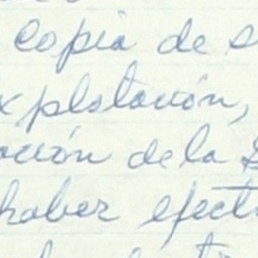 copia de s
xplotación,
ación de la S
haber efectu